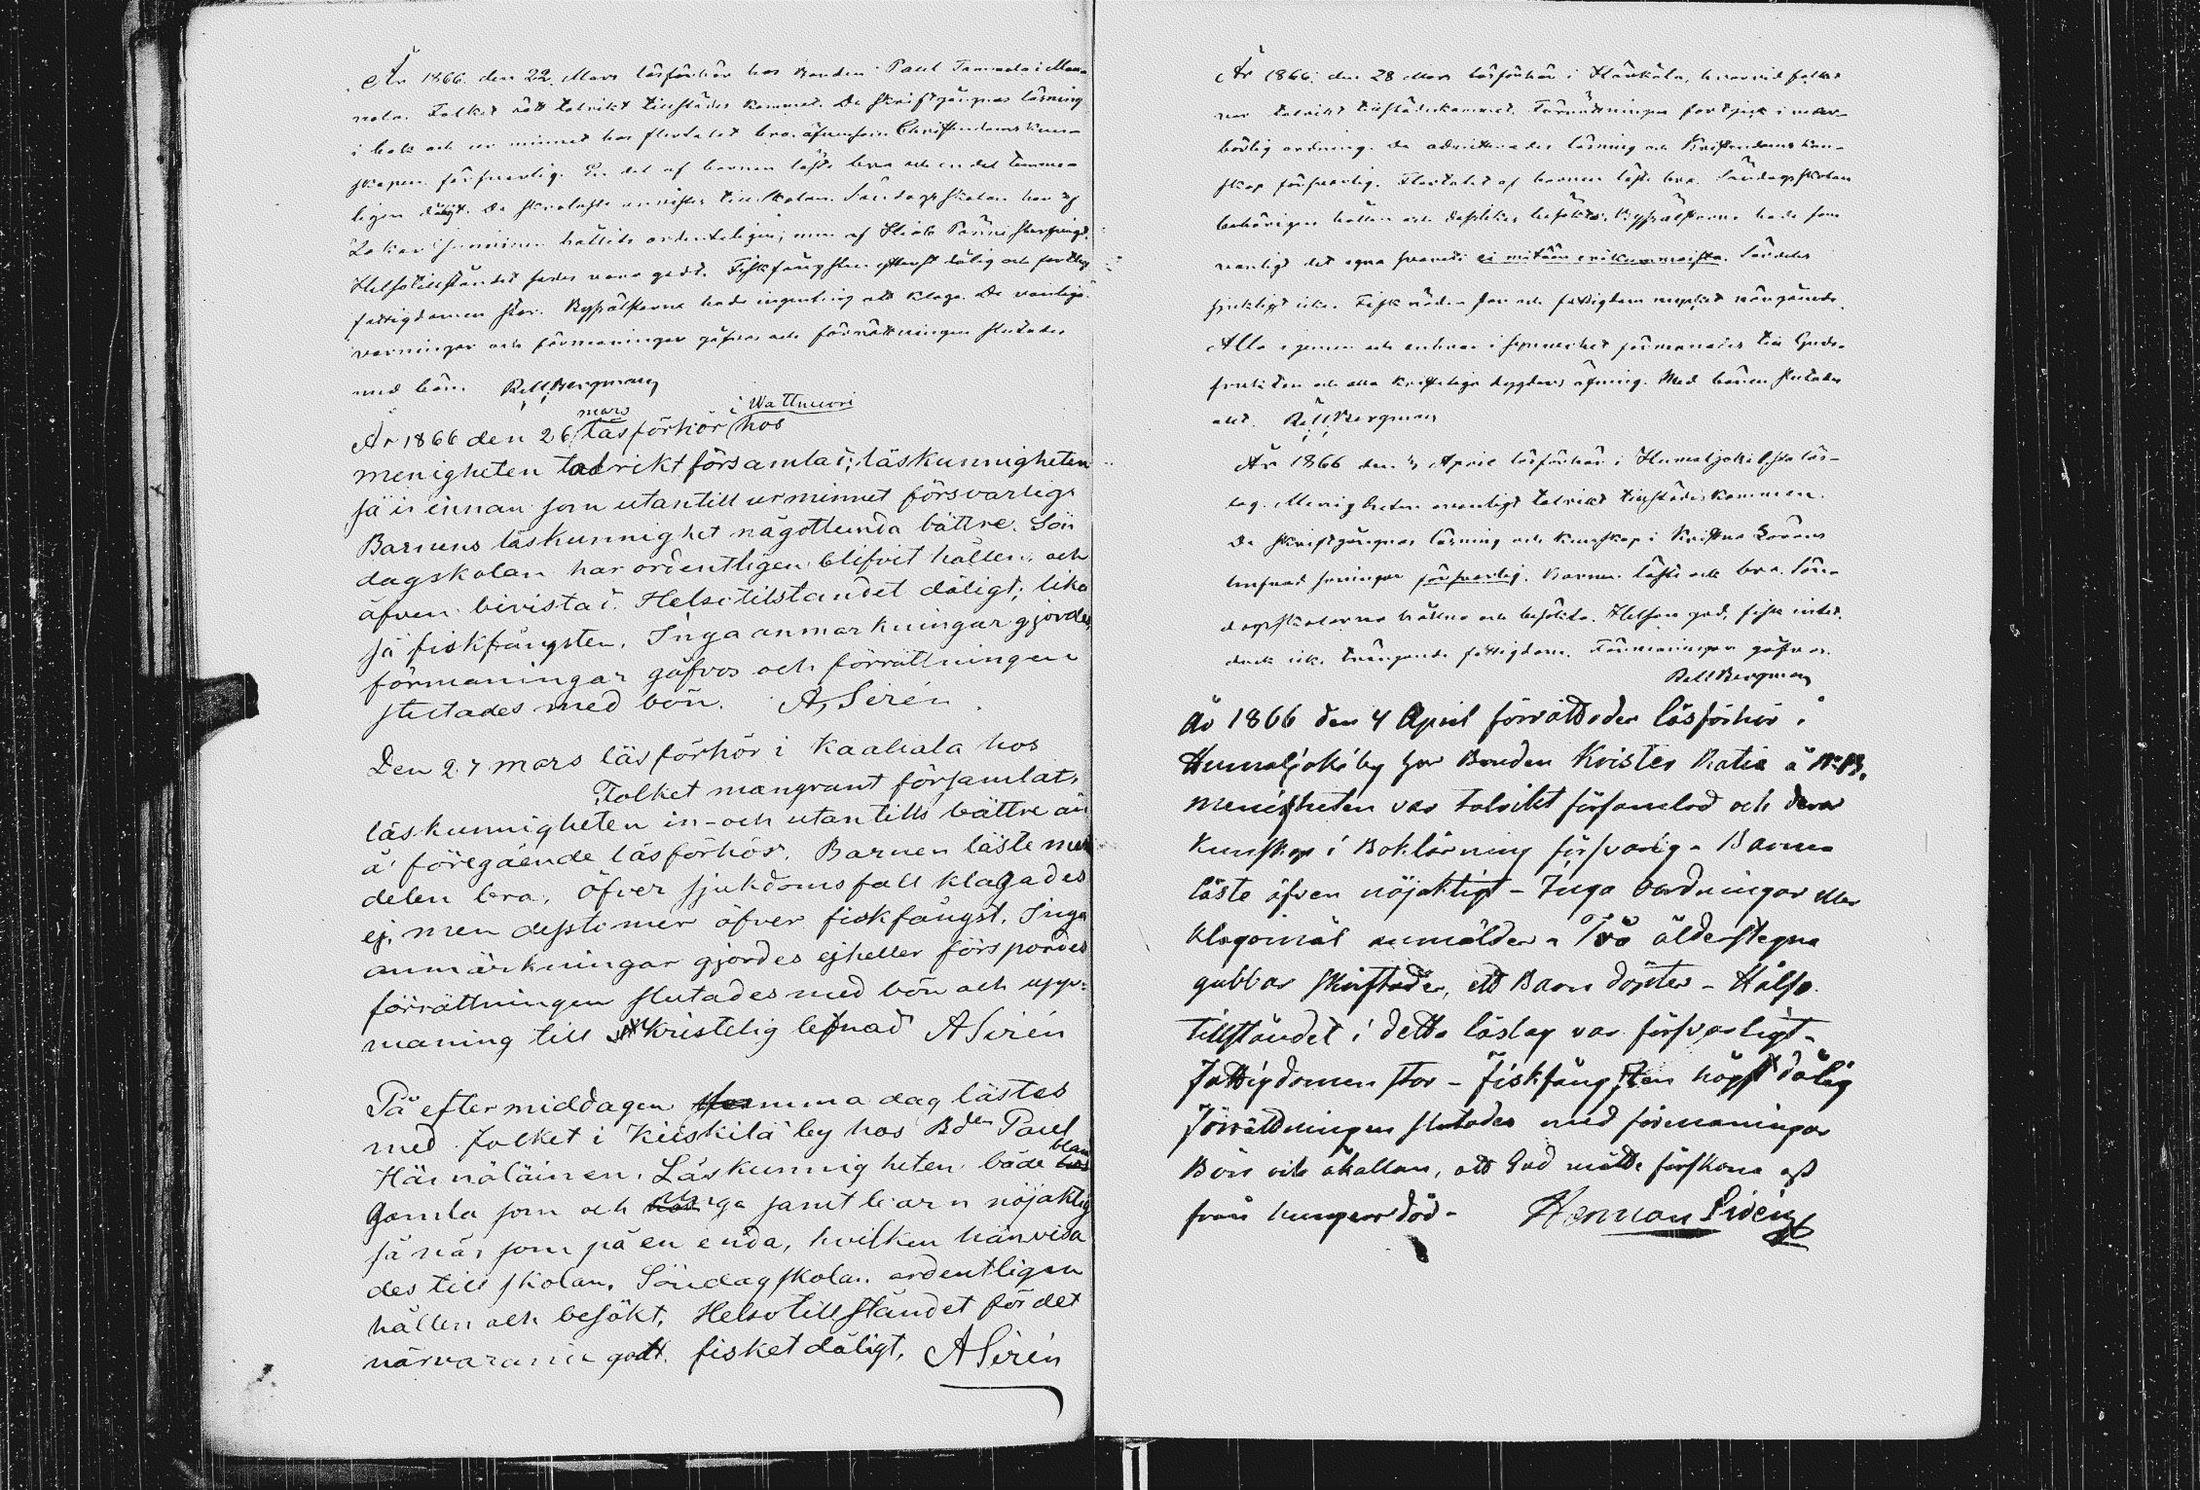 År 1866. den 22 Mars läsförhör hos Bonden Paul Tammela i Man-
nola. Folket rätt talrikt tillstädes kommet. De skriftgångnas läsning
i bok och ur minnet hos flertalet bra, äfvensom Christendoms kun-
skapen försvarlig. En del af barnen läste bra och en del temme-
ligen dåligt. De skralaste anvistes till skolan. Söndagsskolan har af
hållits ordenteligen, men af
Helsotillståndet sades vara godt. Fiskfångsten ytterst dålig och fattig
fattigdomen stor. Byeålsterne hade ingenting att klaga. De vanliga
varningar och förmaningar gåfvos och förrättningen slutades
med bön. Bergman
mars i Wattnuori
År 1866 den 26 läsförhör hos
menigheten talrikt församlad; läskunnigheten
så i innan som utantill ur minnet försvarlig.
Barnens läskunnighet någotlunda bättre. Sön
dagskolan har ordentligen blifvit hållen, och
äfven bivistad. Helsotilståndet dåligt; lika
så fiskfångsten. Inga anmärkningar gjordes,
förmaningar gåfvos och förrättningen
slutades med bön. A, Sirén.
Den 27 mars läsförhör i Kaaliala hos
Folket mangrant församlat,
läskunnigheten in- och utantills bättre än
å föregående läsförhör. Barnen läste mest
delen bra. Öfver sjukdomsfall klagades
ej, men dessto mer öfver fiskfångst. Inga
anmärkningar gjordes ejheller förspordes
förrättningen slutades med bön och upp-
maning till kristelig lefnad A Sirén
På eftermiddagen samma dag lästes
med folket i Kiiskilä by hos Bden Paul
Härnöläinen. Läskunnigheten både bland
Gamla som och unga samt barn nöjaktig
så när som på en enda, hvilken hänvisa
des till skolan. Söndagskolan ordentligen
hållen och besökt. Helsotillståndet för det
närvarande godt. fisket dåligt. A Sirén
År 1866. den 28 Mars läsförhör i Härkälä, hvarvid folket
var talrikt tillstädeskommet. Förrättningen fortgick i veder-
börlig ordning. De admitterades läsning och Kristendoms kun-
skap försvarlig. Flertalet af barnen läste bra. Söndagsskolan
behörigen hållen och desslikes besökt. Byeålsterne hade som
vanligt det egna svaret: ei mitään erikummaista. Särdeles
sjukligt icke. Fisk nöden stor och fattigdom mycket närgående.
Alla egemen och enhvar i synnerhet förmanades till Guds-
fruktan och alla kristeliga dygders öfning. Med bönen slutades
allt. Bergman
År 1866 den 3 April läsförhör i Humaljoki östra läs-
lag. Menigheten ovanligt talrikt tillstädes kommen.
De skriftgångnas läsning och kunskap i Kristna Lärans
hufvud sanningar försvarlig. Barnen läste ock bra. Sön-
dagsskolorna hållne och besökta. Helsan god, fisk intet,
dock icke trängande fattigdom. Förmaningar gåfvos.
Bergman
År 1866 den 4 April förrättades läsförhör i
Humaljoki by hos Bonden Krister Ratia å No 13.
menigheten var talrikt församlad och deras
kunskap i Boklärning försvarlig - Barnen
läste äfven nöjaktigt - Inga oordningar eller
klagomål anmäldes - Två ålderstegna
gubbar skriftades, ett Barn döptes - Hälso
tillståndet i detta läslag var försvarligt -
Fattigdomen stor - Fiskfångsten högst dålig
Förrättningen slutades med förmaningar
Bön och åkallan, att Gud måtte förskona oss
från hungersdöd - Herman Sirén